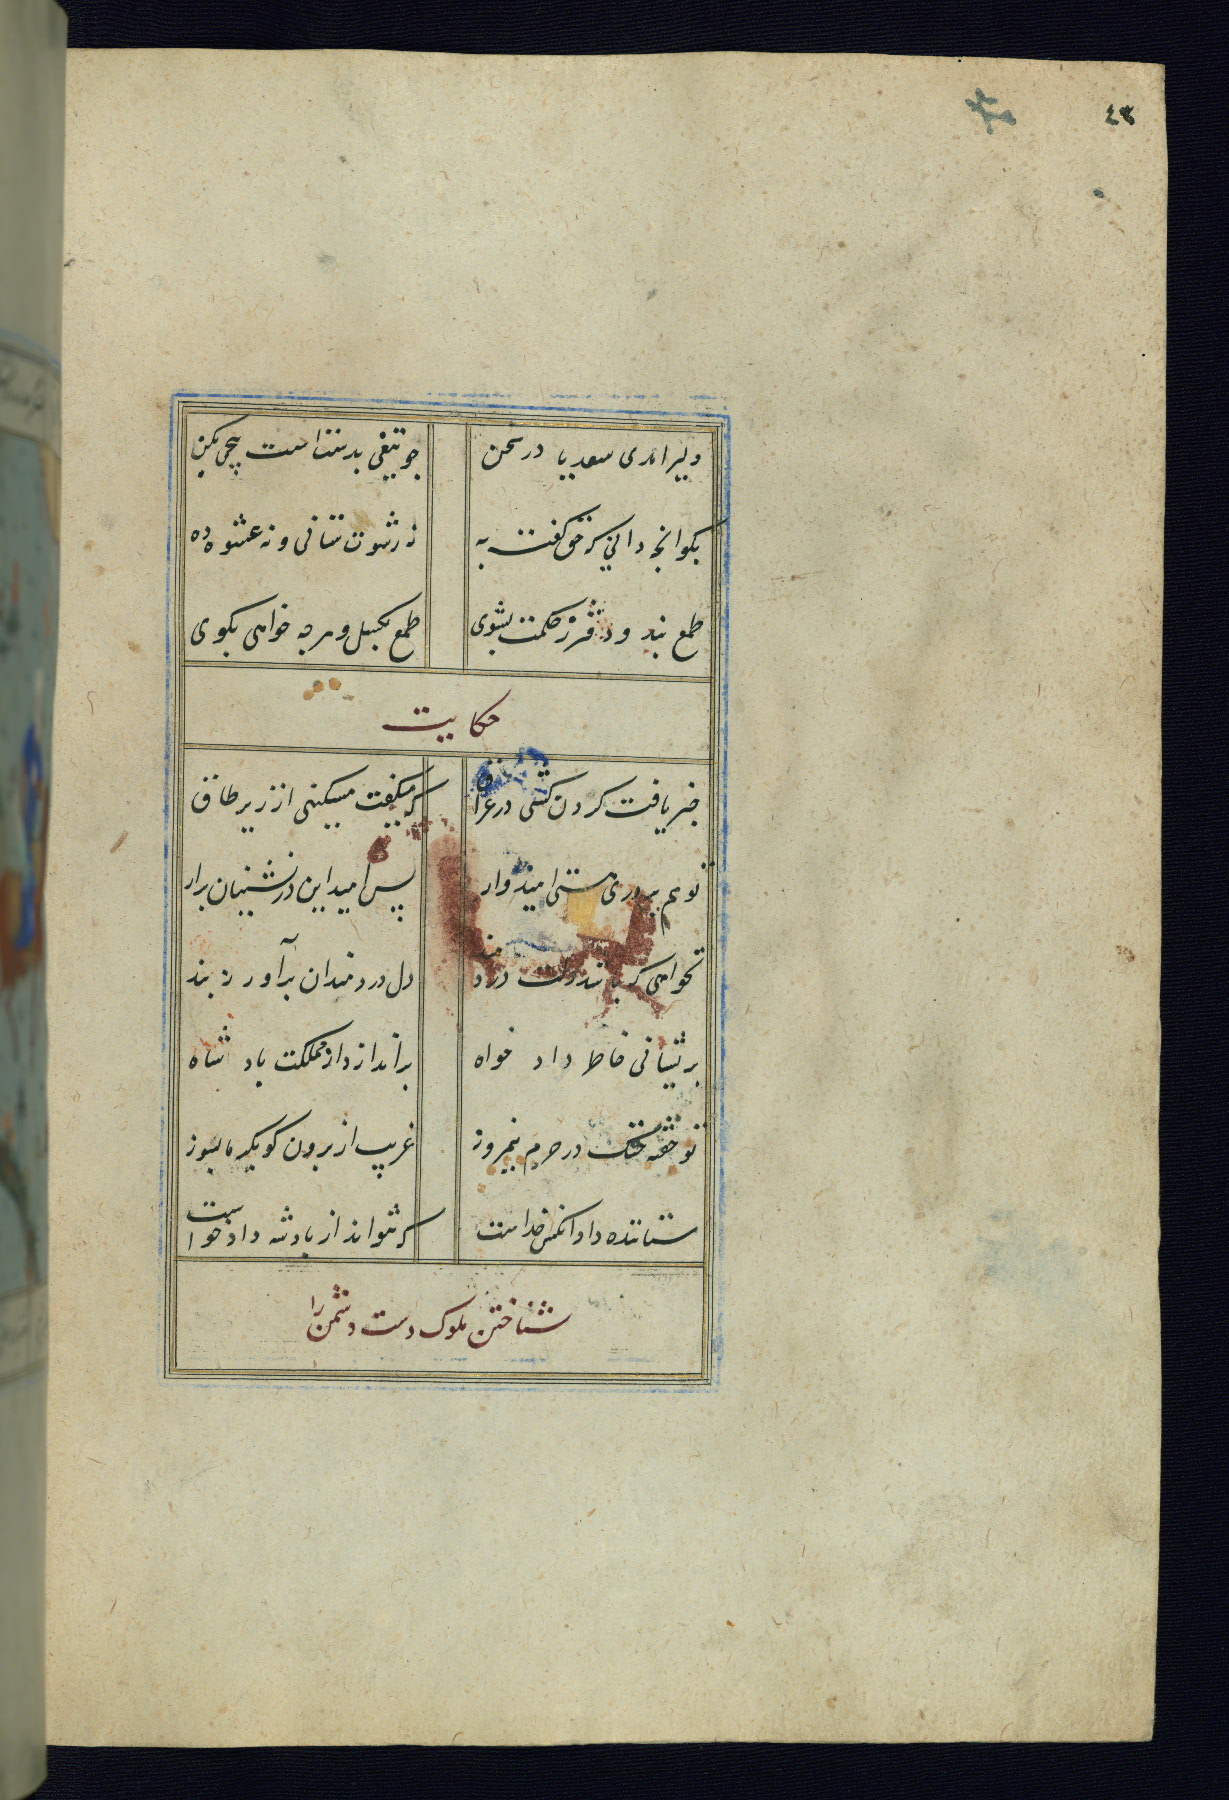 ٤٣
دلیر آمدی سعدیا در سخن
چو تیغی بدستت است پیچی بکن
بگو آنچه دانی که حق گفته به
نه رشوت ستانی و نه عشوه ده
طمع بند و دفتر ز حکمت بشوی
طمع بگسل و هرچه خواهی بگوی
حکایت
خبر یافت گردن کشی در عراق
که میگفت مسکینی از زیر طاق
تو هم بر دری هستی امیدوار
پس امید این در نشینان برار
نخواهی که باشد دلت دردمند
دل دردمندان برآور ز بند
پریشانی خاطر داد خواه
براندازد از مملکت پادشاه
تو خفته خنک در حرم نیمروز
غریب از برون گو بگرما بسوز
ستاننده داد آنکس خداست
که نتواند از پادشه داد خواست
شناختن ملوک دست دشمن را